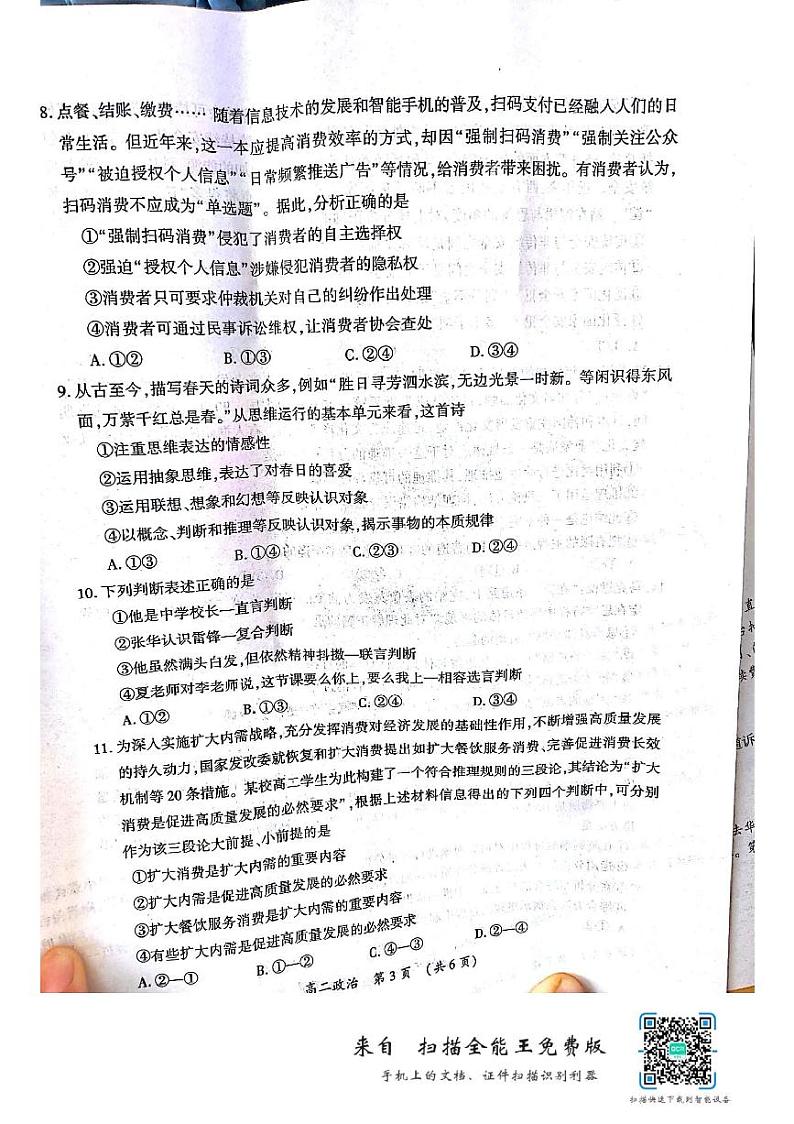 8. 点餐、结账、缴费…… 随着信息技术的发展和智能手机的普及,扫码支付已经融人人们的日
常生活。但近年来,这一本应提高消费效率的方式,却因“强制扫码消费”“强制关注公众
号”“被迫授权个人信息”“日常频繁推送广告”等情况,给消费者带来困扰。有消费者认为,
扫码消费不应成为“单选题”。据此,分析正确的是
①“强制扫码消费”侵犯了消费者的自主选择权
②强迫“授权个人信息”涉嫌侵犯消费者的隐私权
③消费者只可要求仲裁机关对自己的纠纷作出处理
④消费者可通过民事诉讼维权,让消费者协会查处
A. ①② B. ①③ C. ②④ D. ③④
9. 从古至今,描写春天的诗词众多,例如“胜日寻芳泗水滨,无边光景一时新。等闲识得东风
面,万紫千红总是春。”从思维运行的基本单元来看,这首诗
①注重思维表达的情感性
②运用抽象思维,表达了对春日的喜爱
③运用联想、想象和幻想等反映认识对象
④以概念、判断和推理等反映认识对象,揭示事物的本质规律
A. ①③ B. ①④ C. ②③ D. ②④
10. 下列判断表述正确的是
①他是中学校长—直言判断
②张华认识雷锋—复合判断
③他虽然满头白发,但依然精神抖擞—联言判断
④夏老师对李老师说,这节课要么你上,要么我上—相容选言判断
A. ①② B. ①③ C. ②④ D. ③④
11. 为深入实施扩大内需战略,充分发挥消费对经济发展的基础性作用,不断增强高质量发展
的持久动力,国家发改委就恢复和扩大消费提出如扩大餐饮服务消费、完善促进消费长效
机制等 20 条措施。某校高二学生为此构建了一个符合推理规则的三段论,其结论为“扩大
消费是促进高质量发展的必然要求”,根据上述材料信息得出的下列四个判断中,可分别
作为该三段论大前提、小前提的是
①扩大消费是扩大内需的重要内容
②扩大内需是促进高质量发展的必然要求
③扩大餐饮服务消费是扩大内需的重要内容
④有些扩大内需是促进高质量发展的必然要求
A. ②—① B. ①—② C. ④—③ D. ②—④
高二政治 第 3 页 (共 6 页)
来自 扫描全能王免费版
手机上的文档、证件扫描识别利器
扫描快速下载到智能设备